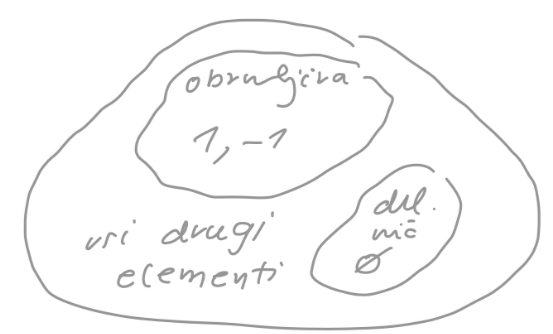 obrnljiva
1, -1
vsi drugi
elementi
del.
nič
∅